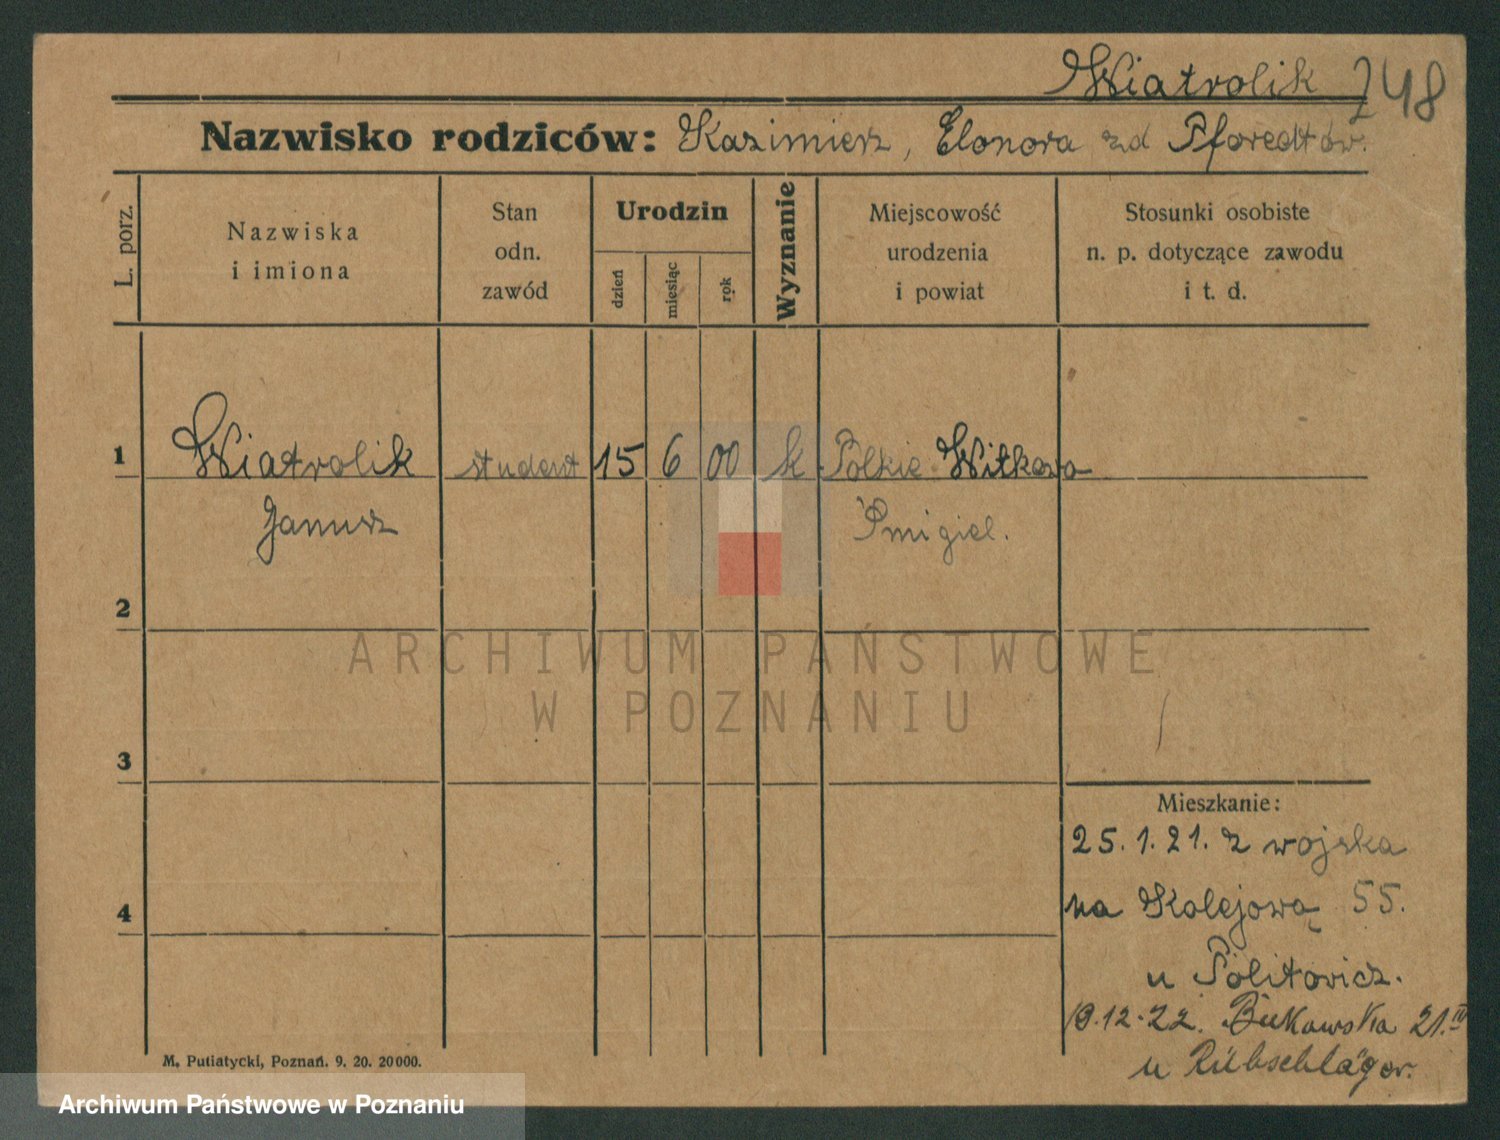 Wiatrolik 248
Nazwisko rodziców: Kazimierz, Elonora zd Pforedtów.
L. porz.
Nazwiska
i imiona
Stan
odn.
zawód
Urodzin
dzień
miesiąc
rok
Wyznanie
Miejscowość
urodzenia
i powiat
Stosunki osobiste
n. p. dotyczące zawodu
i t. d.
1 Wiatrolik student 15 6 00 k Polkie Witkowo
Janusz Śmigiel.
2
ARCHIWUM PAŃSTWOWE
W POZNANIU
3
Mieszkanie:
25.1.21. z wojska
4 na Kolejową 55.
u Politowicz.
19.12.22. Bukowska 21.III
u Rübschläger.
M. Putiatycki, Poznań. 9. 20. 20000.
Archiwum Państwowe w Poznaniu